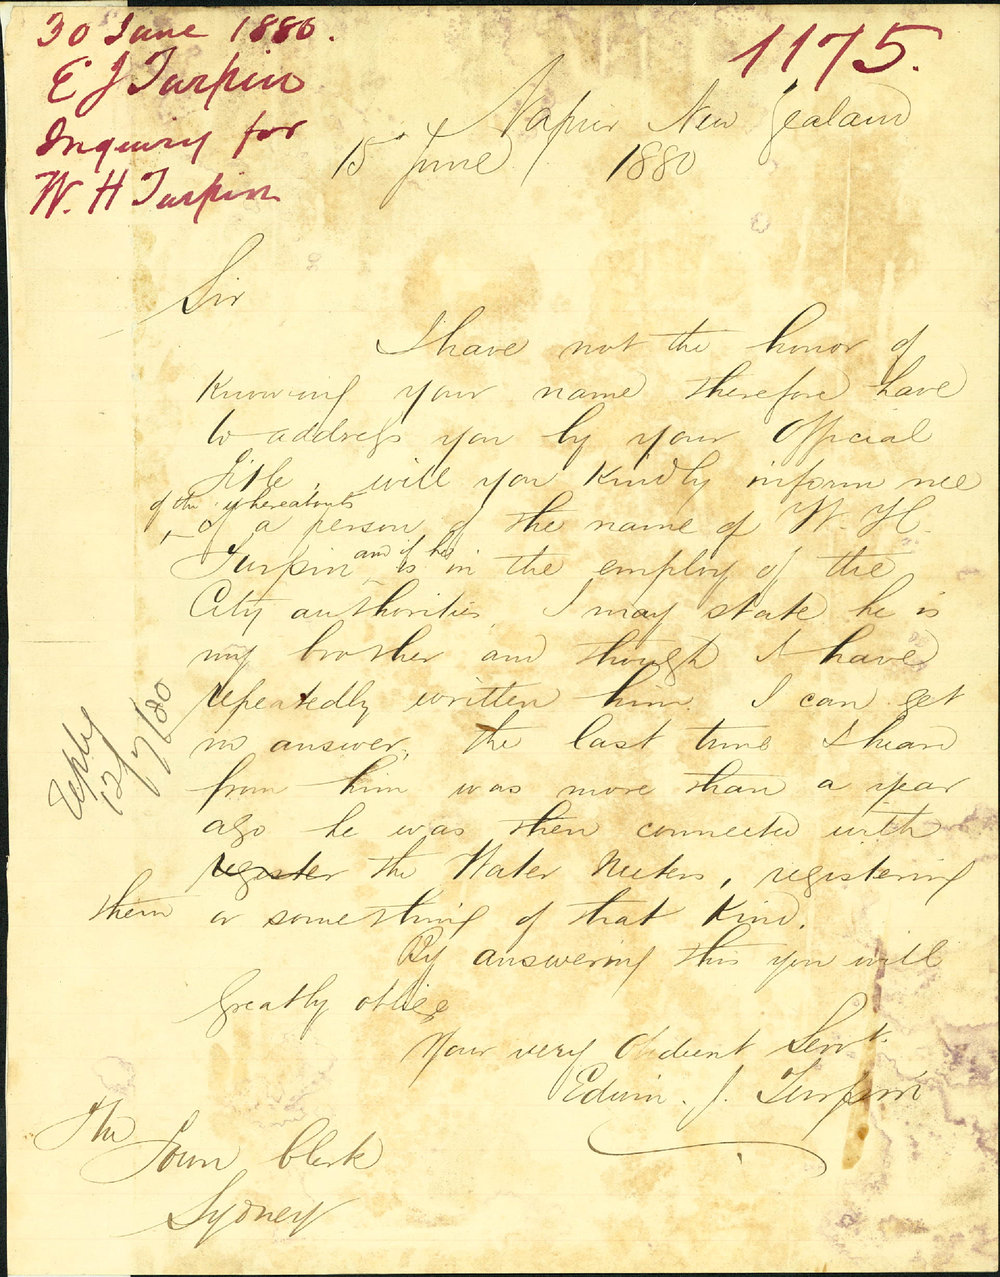 30 June 1880.
E J Turpin
Inquiry for
W. H Turpin
1175.
Napier New Zealand
15 June 1880
Sir
I have not the honor of
Knowing your name therefore have
to address you by your Official
Title, will you Kindly inform me
of the whereabouts
of a person of the name of W. H.
Turpin and if he is in the employ of the
City authorities I may state he is
my brother and though I have
repeatedly written him I can get
no answer, the last time I heard
from him was more than a year
ago he was then connected with
register the Water Meters, registering
them or something of that Kind.
By answering this you will
greatly oblige
Your very Obedient Servt.
Edwin. J. Turpin
The
Town Clerk
Sydney
Reply
12/7/80